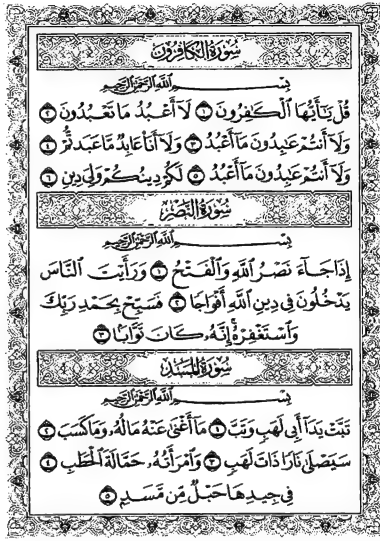 سُورَةُ الكَافِرُونَ
بِسْمِ اللَّهِ الرَّحْمَٰنِ الرَّحِيمِ
قُلْ يَٰٓأَيُّهَا ٱلْكَٰفِرُونَ ١ لَآ أَعْبُدُ مَا تَعْبُدُونَ ٢
وَلَآ أَنتُمْ عَٰبِدُونَ مَآ أَعْبُدُ ٣ وَلَآ أَنَا۠ عَابِدٌ مَّا عَبَدتُّمْ ٤
وَلَآ أَنتُمْ عَٰبِدُونَ مَآ أَعْبُدُ ٥ لَكُمْ دِينُكُمْ وَلِيَ دِينِ ٦
سُورَةُ النَّصْرِ
بِسْمِ اللَّهِ الرَّحْمَٰنِ الرَّحِيمِ
إِذَا جَآءَ نَصْرُ ٱللَّهِ وَٱلْفَتْحُ ١ وَرَأَيْتَ ٱلنَّاسَ
يَدْخُلُونَ فِى دِينِ ٱللَّهِ أَفْوَاجًا ٢ فَسَبِّحْ بِحَمْدِ رَبِّكَ
وَٱسْتَغْفِرْهُ إِنَّهُۥ كَانَ تَوَّابًۢا ٣
سُورَةُ المَسَدِ
بِسْمِ اللَّهِ الرَّحْمَٰنِ الرَّحِيمِ
تَبَّتْ يَدَآ أَبِى لَهَبٍ وَتَبَّ ١ مَآ أَغْنَىٰ عَنْهُ مَالُهُۥ وَمَا كَسَبَ ٢
سَيَصْلَىٰ نَارًا ذَاتَ لَهَبٍ ٣ وَٱمْرَأَتُهُۥ حَمَّالَةَ ٱلْحَطَبِ ٤
فِى جِيدِهَا حَبْلٌ مِّن مَّسَدٍۭ ٥